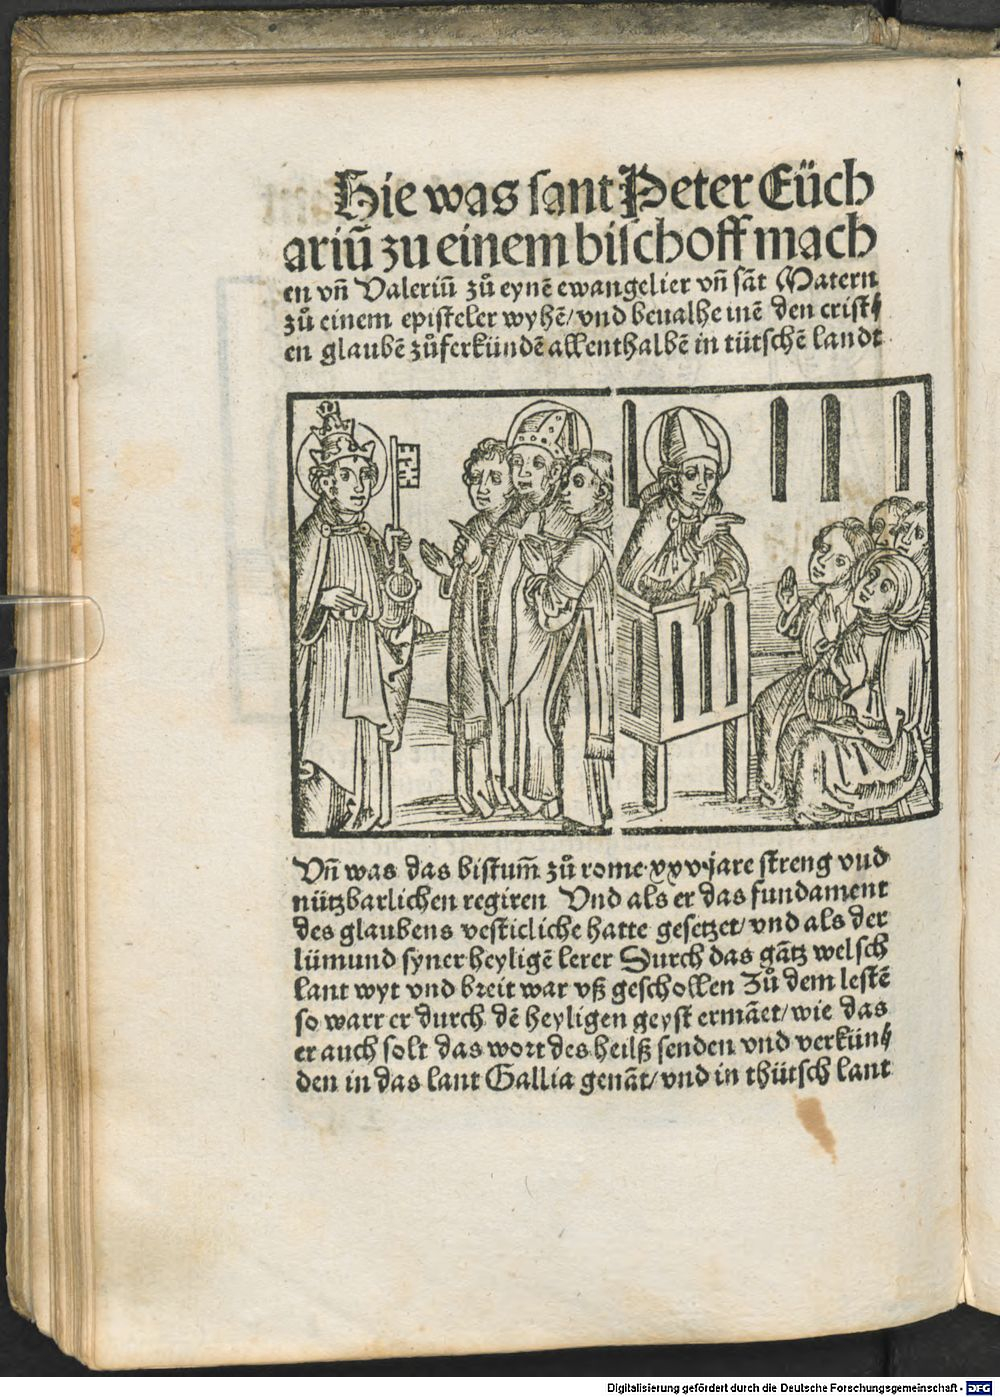 Hie was sant Peter Eüch
ariū zu einem bischoff mach
en vn̄ Valeriū zů eynē ewangelier vn̄ sāt Matern
zů einem episteler wyhē/ vnd beualhe inē den crist⸗
en glaubē zůferkündē allenthalbē in tütschē landt
Vn̄ was das bistum̄ zů rome·xxv·jare streng vnd
nützbarlichen regiren Vnd als er das fundament
des glaubens vesticliche hatte gesetzet/ vnd als der
lümund syner heyligē lerer Durch das gātz welsch
lant wyt vnd breit war vß geschollen Zů dem lestē
so warr er durch dē heyligen geyst ermāet/ wie das
er auch solt das wort des heilß senden vnd verkün⸗
den in das lant Gallia genāt/ vnd in thütsch lant
Digitalisierung gefördert durch die Deutsche Forschungsgemeinschaft - DFG